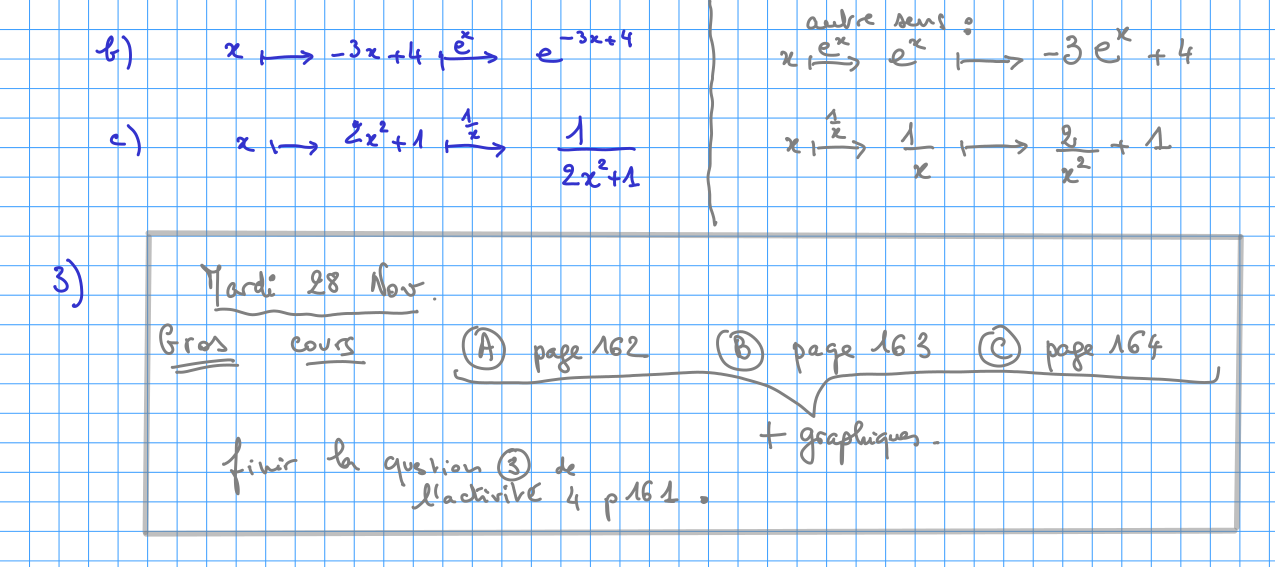 autre sens :
b) x ⟼ -3x+4 ⟼(eˣ) e^(-3x+4) x ⟼(eˣ) eˣ ⟼ -3eˣ + 4
c) x ⟼ 2x²+1 ⟼(1/x) 1/(2x²+1) x ⟼(1/x) 1/x ⟼ 2/x² + 1
3) Mardi 28 Nov.
Gros cours Ⓐ page 162 Ⓑ page 163 Ⓒ page 164
+ graphiques.
finir la question ③ de
l'activité 4 p161.